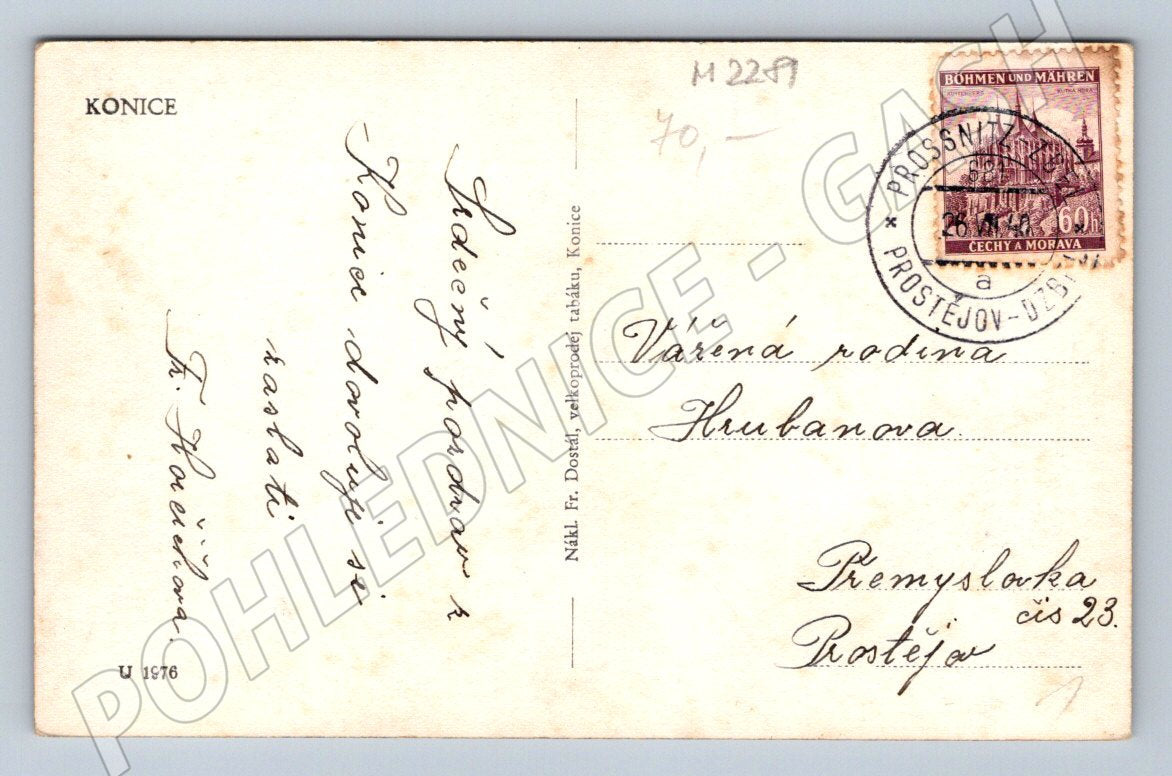 KONICE
Srdečný pozdrav z
Konice dovoluje si
zaslati
Fr.
U 1976
Nákl. Fr. Dostál, velkoprodej tabáku, Konice
M 2281
70,-
BÖHMEN UND MÄHREN
KUTTENBERG KUTNÁ HORA
60h
ČECHY A MORAVA
PROSSNITZ
26 VII 40
a
PROSTĚJOV-
Vážená rodina
Hrubanova
Přemyslovka
čis 23.
Prostějov
1
POHLEDNICE - GASH